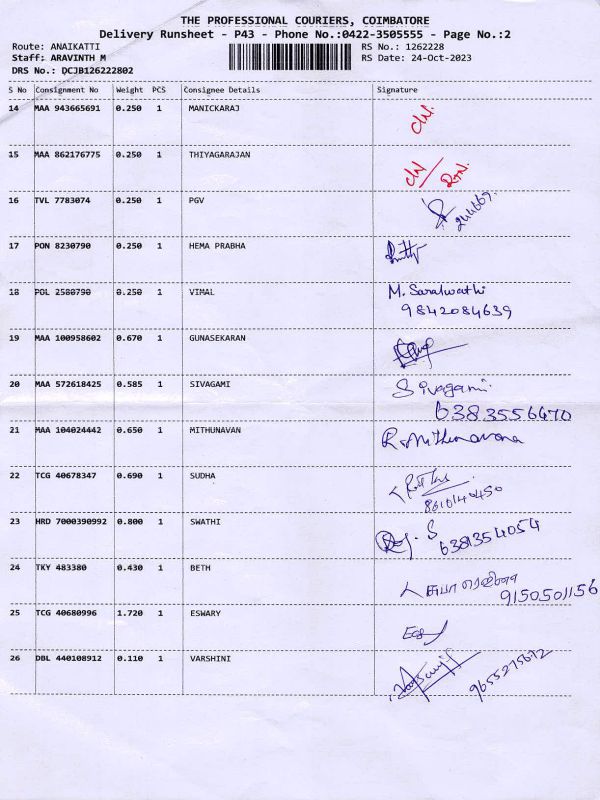 THE PROFESSIONAL COURIERS, COIMBATORE
Delivery Runsheet - P43 - Phone No.:0422-3505555 - Page No.:2
Route: ANAIKATTI RS No.: 1262228
Staff: ARAVINTH M RS Date: 24-Oct-2023
DRS No.: DCJB126222802
S No Consignment No Weight PCS Consignee Details Signature
14 MAA 943665691 0.250 1 MANICKARAJ
15 MAA 862176775 0.250 1 THIYAGARAJAN
16 TVL 7783074 0.250 1 PGV
17 PON 8230790 0.250 1 HEMA PRABHA
18 POL 2580790 0.250 1 VIMAL M. Saralwathi
9842084639
19 MAA 100958602 0.670 1 GUNASEKARAN
20 MAA 572618425 0.585 1 SIVAGAMI Sivagami
6383556470
21 MAA 104024442 0.650 1 MITHUNAVAN R. Mithunavana
22 TCG 40678347 0.690 1 SUDHA
8610140450
23 HRD 7000390992 0.800 1 SWATHI
6381354054
24 TKY 483380 0.430 1 BETH
9150501156
25 TCG 40680996 1.720 1 ESWARY
26 DBL 440108912 0.110 1 VARSHINI
9655275672